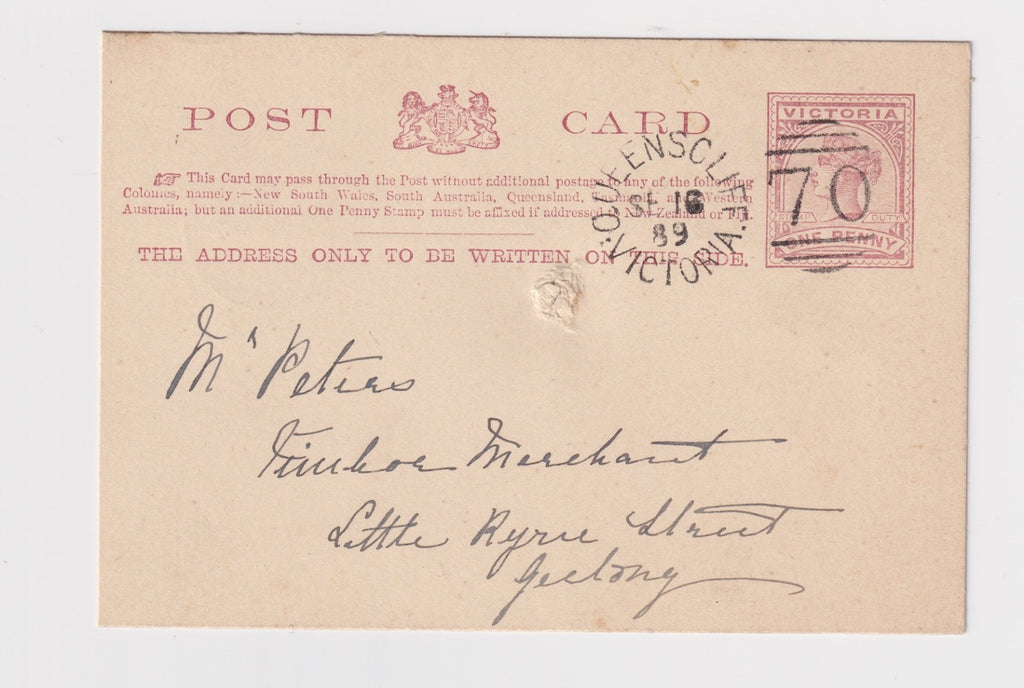 POST CARD
VICTORIA
☞ This Card may pass through the Post without additional postage to any of the following
Colonies, namely:—New South Wales, South Australia, Queensland, Tasmania, and Western
Australia; but an additional One Penny Stamp must be affixed if addressed to New Zealand or Fiji.
STAMP DUTY
ONE PENNY
THE ADDRESS ONLY TO BE WRITTEN ON THIS SIDE.
QUEENSCLIFF
SE 16
89
VICTORIA.
70
Mr Peters
Timber Merchant
Little Ryrie Street
Geelong